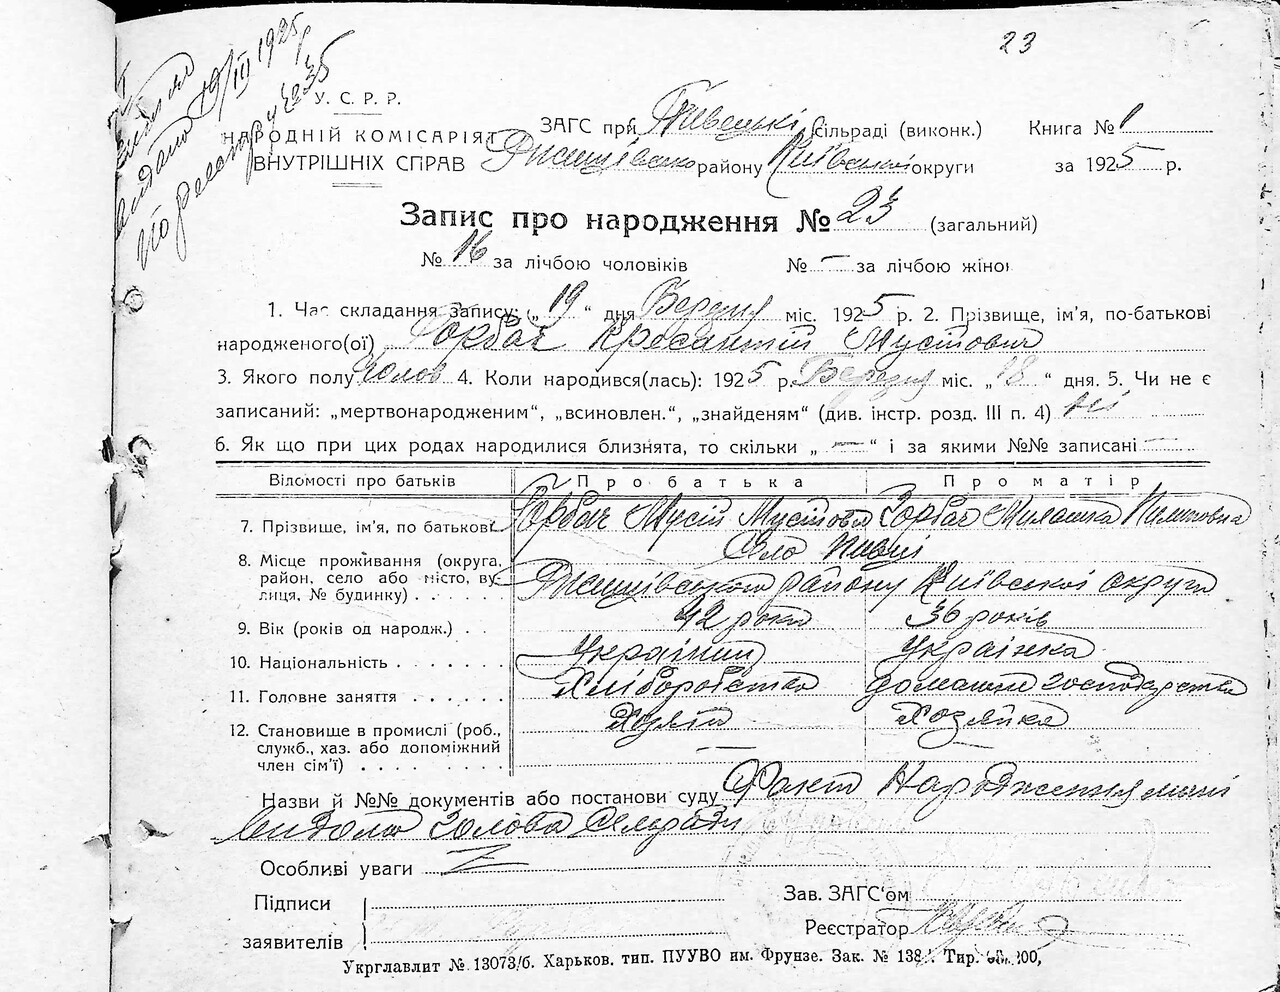 23
видано 19/III 1925 р
по реєстру № 235
У. С. Р. Р.
НАРОДНІЙ КОМІСАРІЯТ
ВНУТРІШНІХ СПРАВ
ЗАГС при Півецькі сільраді (виконк.) Книга № 1
Ржищівсько району Київської округи за 1925 р.
Запис про народження № 23 (загальний)
№ 16 за лічбою чоловіків № — за лічбою жінок
1. Час складання запису: „19“ дня Березня міс. 1925 р. 2. Прізвище, ім'я, по-батькові
народженого(ої) Горбач Кресантій Мусіович
3. Якого полу Чолов 4. Коли народився(лась): 1925 р. Березня міс. „18“ дня. 5. Чи не є
записаний: „мертвонародженим“, „всиновлен.“, „знайденям“ (див. інстр. розд. III п. 4) ні
6. Як що при цих родах народилися близнята, то скільки „—“ і за якими №№ записані —
Відомості про батьків Про батька Про матір
7. Прізвище, ім'я, по батькові Горбач Мусій Горбач Милашка
Село Півці
8. Місце проживання (округа, район, село або місто, вулиця, № будинку) Ржищівського району Київської округи
9. Вік (років од народж.) 42 роки 36 років
10. Національність Українець Українка
11. Головне заняття Хліборобство домашнє господарство
12. Становище в промислі (роб., служб., хаз. або допоміжний член сім'ї) Хозяїн Хозяйка
Назви й №№ документів або постанови суду Факт Народження
Голова Сельради
Особливі уваги
Підписи
заявителів
Зав. ЗАГС'ом
Реєстратор
Укрглавлит № 13073/б. Харьков. тип. ПУУВО им. Фрунзе. Зак. № 138 Тир.